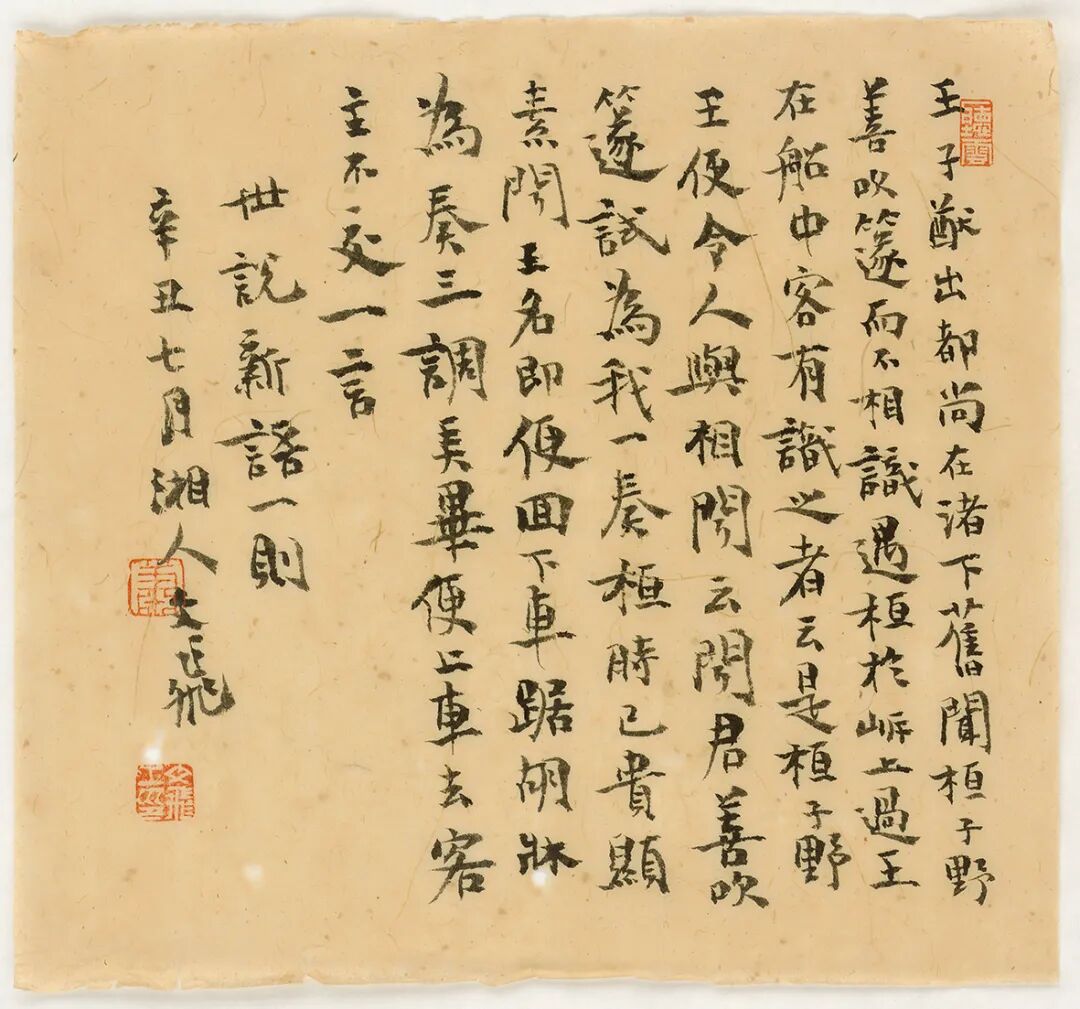 王子猷出都尚在渚下舊聞桓子野
善吹篴而不相識遇桓於岍上過王
在船中客有識之者云是桓子野
王便令人與相聞云聞君善吹
篴試為我一奏桓時已貴顯
素聞王名即便回下車踞胡牀
為奏三調弄畢便上車去客
主不交一言
世說新語一則
辛丑七月湘人文飛